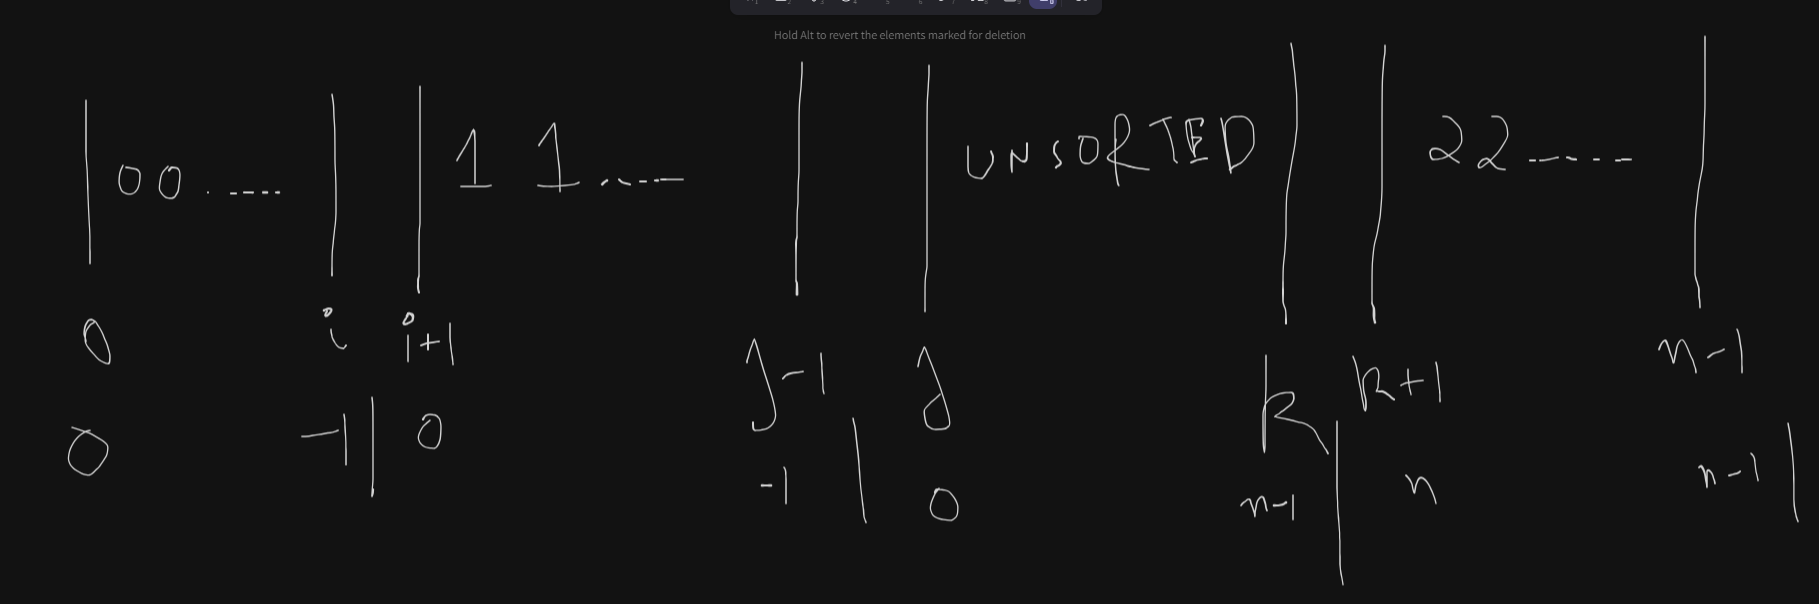 Hold Alt to revert the elements marked for deletion
00.---- 11.---- UNSORTED 22-----
0 i i+1 j-1 j k k+1 n-1
0 -1 0 -1 0 n-1 n n-1